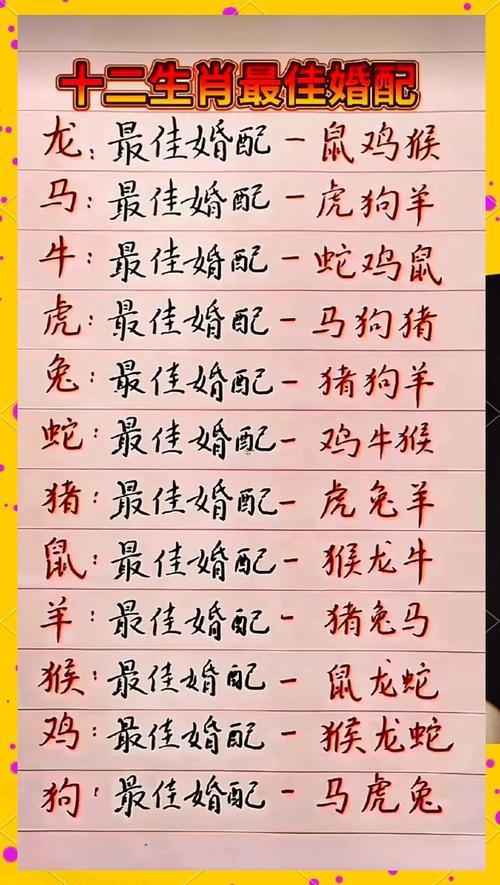 十二生肖最佳婚配
龙:最佳婚配-鼠鸡猴
马:最佳婚配-虎狗羊
牛:最佳婚配-蛇鸡鼠
虎:最佳婚配-马狗猪
兔:最佳婚配-猪狗羊
蛇:最佳婚配-鸡牛猴
猪:最佳婚配-虎兔羊
鼠:最佳婚配-猴龙牛
羊:最佳婚配-猪兔马
猴:最佳婚配-鼠龙蛇
鸡:最佳婚配-猴龙蛇
狗:最佳婚配-马虎兔